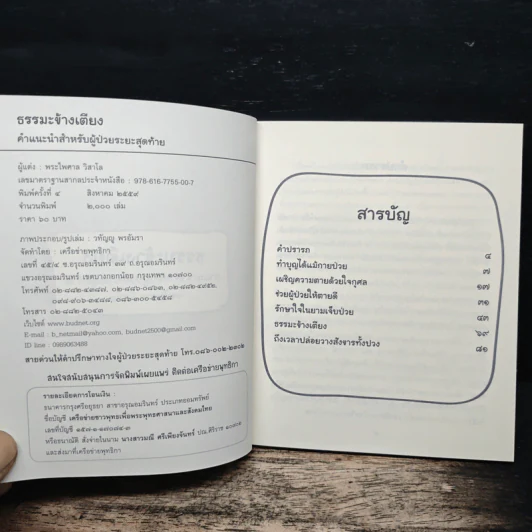 ธรรมะข้างเตียง
คำแนะนำสำหรับผู้ป่วยระยะสุดท้าย
ผู้แต่ง : พระไพศาล วิสาโล
เลขมาตรฐานสากลประจำหนังสือ : 978-616-7755-00-7
พิมพ์ครั้งที่ ๔ สิงหาคม ๒๕๕๙
จำนวนพิมพ์ ๒,๐๐๐ เล่ม
ราคา ๖๐ บาท
ภาพประกอบ/รูปเล่ม : วทัญญู พรอัมรา
จัดทำโดย : เครือข่ายพุทธิกา
เลขที่ ๔๕/๔ ซ.อรุณอมรินทร์ ๓๙ ถ.อรุณอมรินทร์
แขวงอรุณอมรินทร์ เขตบางกอกน้อย กรุงเทพฯ ๑๐๗๐๐
โทรศัพท์
โทรสาร ๐๒-๘๘๒-๕๐๔๓
เว็บไซต์ www.budnet.org
E-mail : b_netmail@yahoo.com, budnet2500@gmail.com
ID line : 0869063488
สายด่วนให้คำปรึกษาทางใจผู้ป่วยระยะสุดท้าย โทร.
สนใจสนับสนุนการจัดพิมพ์เผยแพร่ ติดต่อเครือข่ายพุทธิกา
รายละเอียดการโอนเงิน :
ธนาคารกรุงศรีอยุธยา สาขาอรุณอมรินทร์ ประเภทออมทรัพย์
ชื่อบัญชี เครือข่ายชาวพุทธเพื่อพระพุทธศาสนาและสังคมไทย
เลขที่บัญชี
หรือธนาณัติ สั่งจ่ายในนาม นางสาวมณี ศรีเพียงจันทร์ ปณ.ศิริราช
และส่งมาที่เครือข่ายพุทธิกา
สารบัญ
คำปรารภ ๔
ทำบุญได้แม้กายป่วย ๗
เผชิญความตายด้วยใจกุศล ๑๗
ช่วยผู้ป่วยให้ตายดี ๓๑
รักษาใจในยามเจ็บป่วย ๔๓
ธรรมะข้างเตียง ๖๙
ถึงเวลาปล่อยวางสังขารทั้งปวง ๘๑